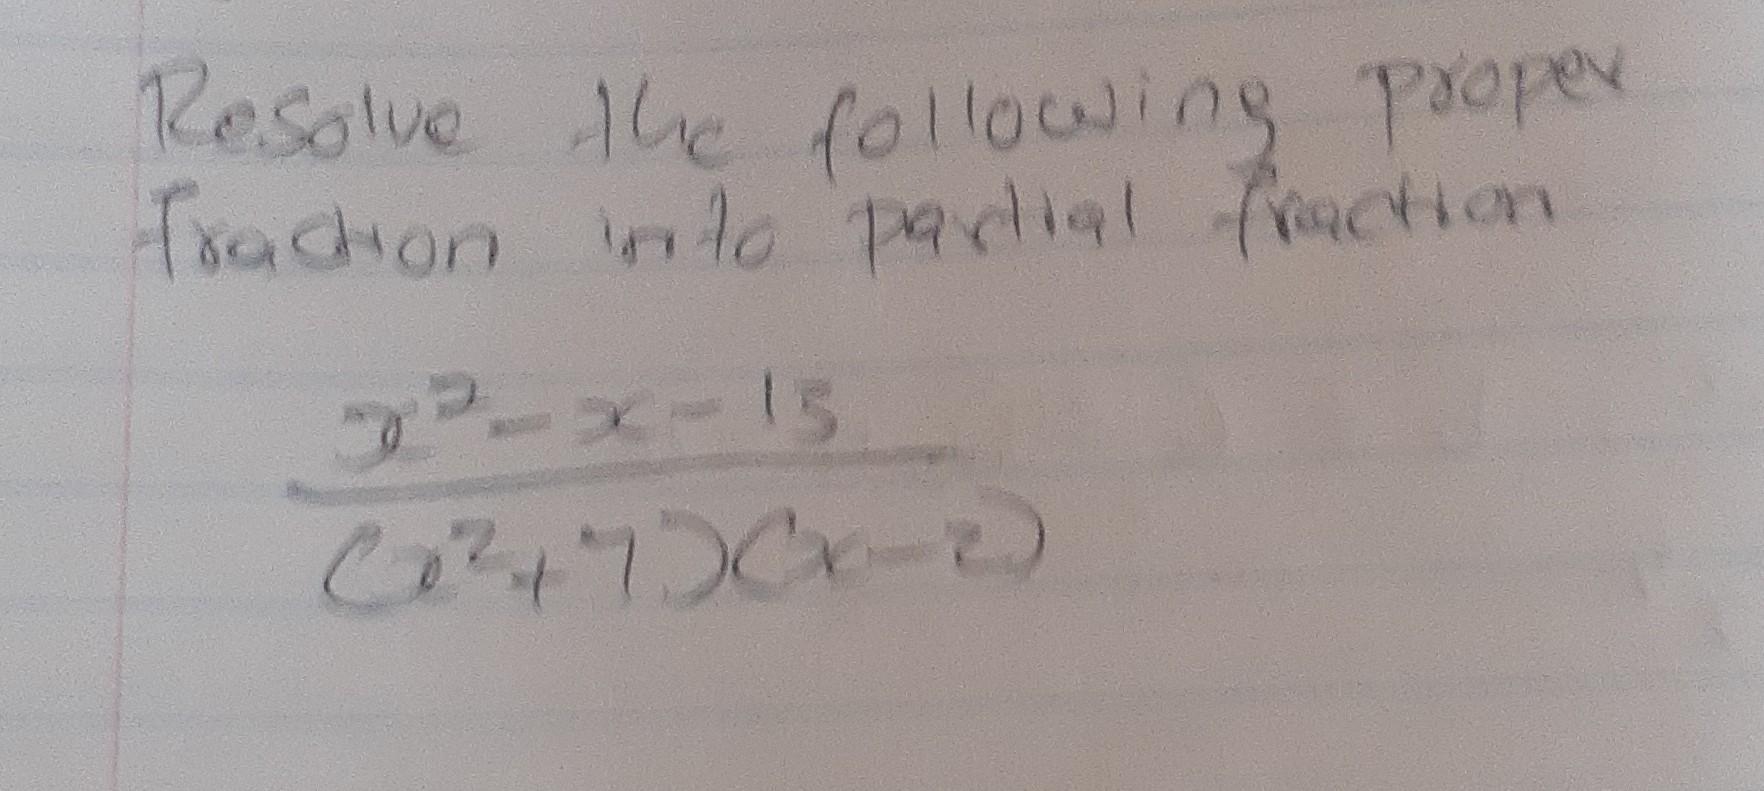 Resolve the following proper
fraction into partial fraction
x² - x - 15
(x² + 7)(x - 2)